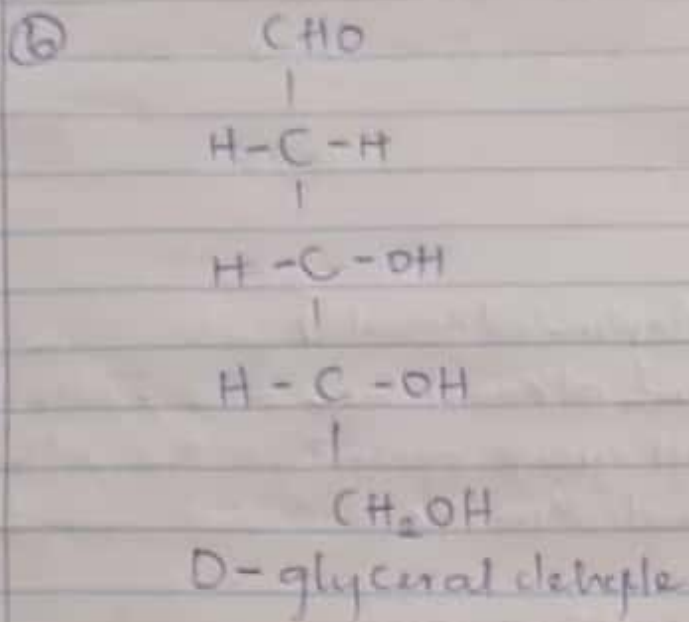 ⑥ CHO
|
H-C-H
|
H-C-OH
|
H-C-OH
|
CH₂OH
D-glyceral